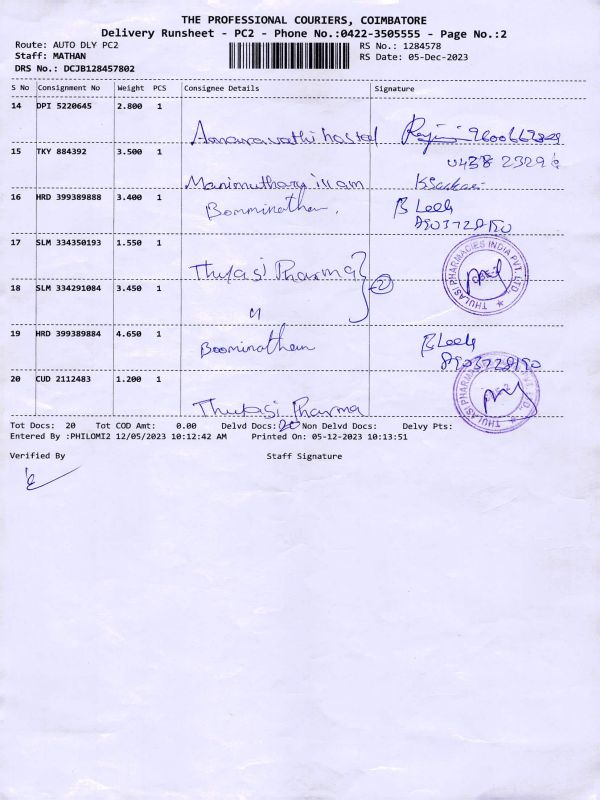 THE PROFESSIONAL COURIERS, COIMBATORE
Delivery Runsheet - PC2 - Phone No.:0422-3505555 - Page No.:2
Route: AUTO DLY PC2 RS No.: 1284578
Staff: MATHAN RS Date: 05-Dec-2023
DRS No.: DCJB128457802
S No Consignment No Weight PCS Consignee Details Signature
14 DPI 5220645 2.800 1
Amaravathi hostel
15 TKY 884392 3.500 1
16 HRD 399389888 3.400 1
B Leela
8903728190
17 SLM 334350193 1.550 1
Thulasi Pharma
THULASI PHARMACIES INDIA PVT. LTD.
18 SLM 334291084 3.450 1
2
19 HRD 399389884 4.650 1
Boominathan B Leela
8903728190
20 CUD 2112483 1.200 1
Thulasi Pharma
THULASI PHARMACIES
Tot Docs: 20 Tot COD Amt: 0.00 Delvd Docs: 20 Non Delvd Docs: Delvy Pts:
Entered By :PHILOMI2 12/05/2023 10:12:42 AM Printed On: 05-12-2023 10:13:51
Verified By Staff Signature